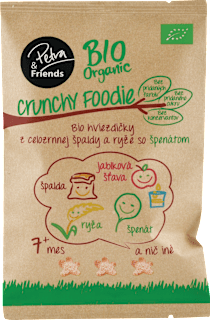 Petra
& Friends
BIO
Organic
crunchy Foodie
Bez
pridaných
farbív
Bez
pridaného
cukru
Bez
konzervantov
Bio hviezdičky
z celozrnnej špaldy a ryže so špenátom
jablková
šťava
špalda
ryža
špenát
7+ mes
a nič iné